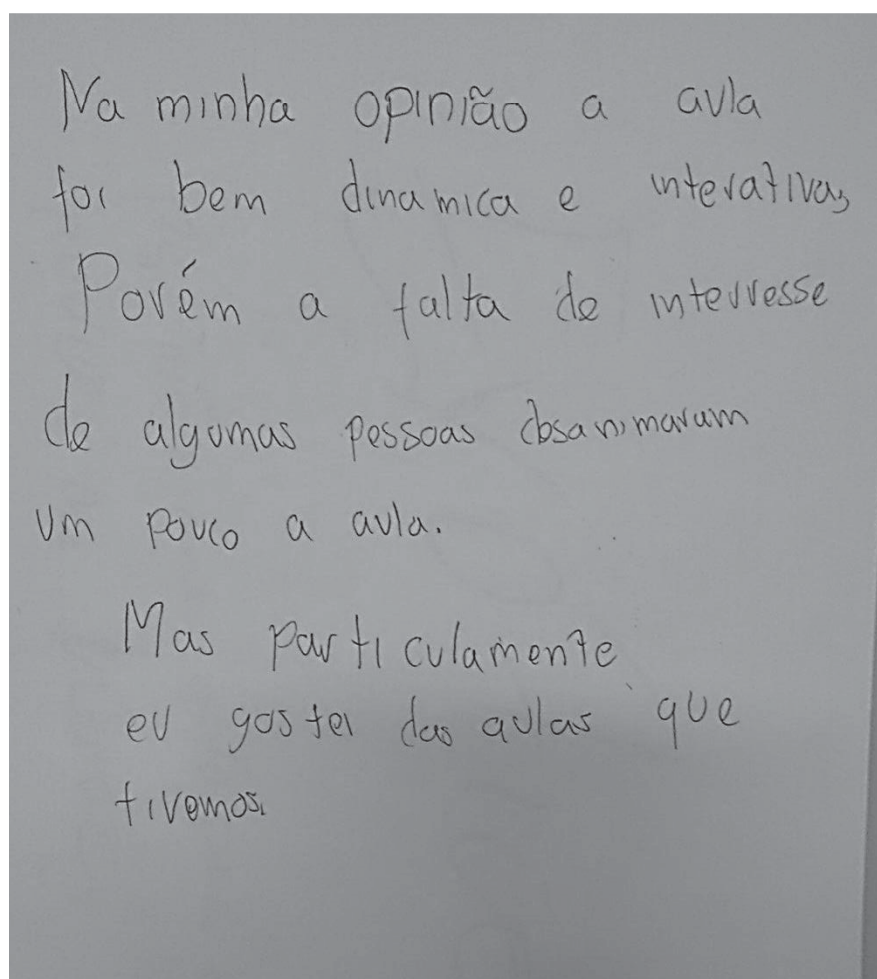 Na minha opinião a aula
foi bem dinamica e interativa,
Porém a falta de interresse
de algumas pessoas desanimaram
um pouco a aula.
Mas particulamente
eu gostei das aulas que
tivemos.